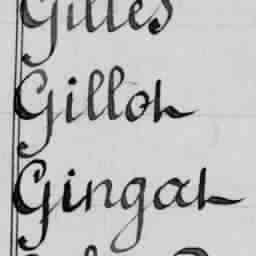 Gilles
Gillot
Gingat